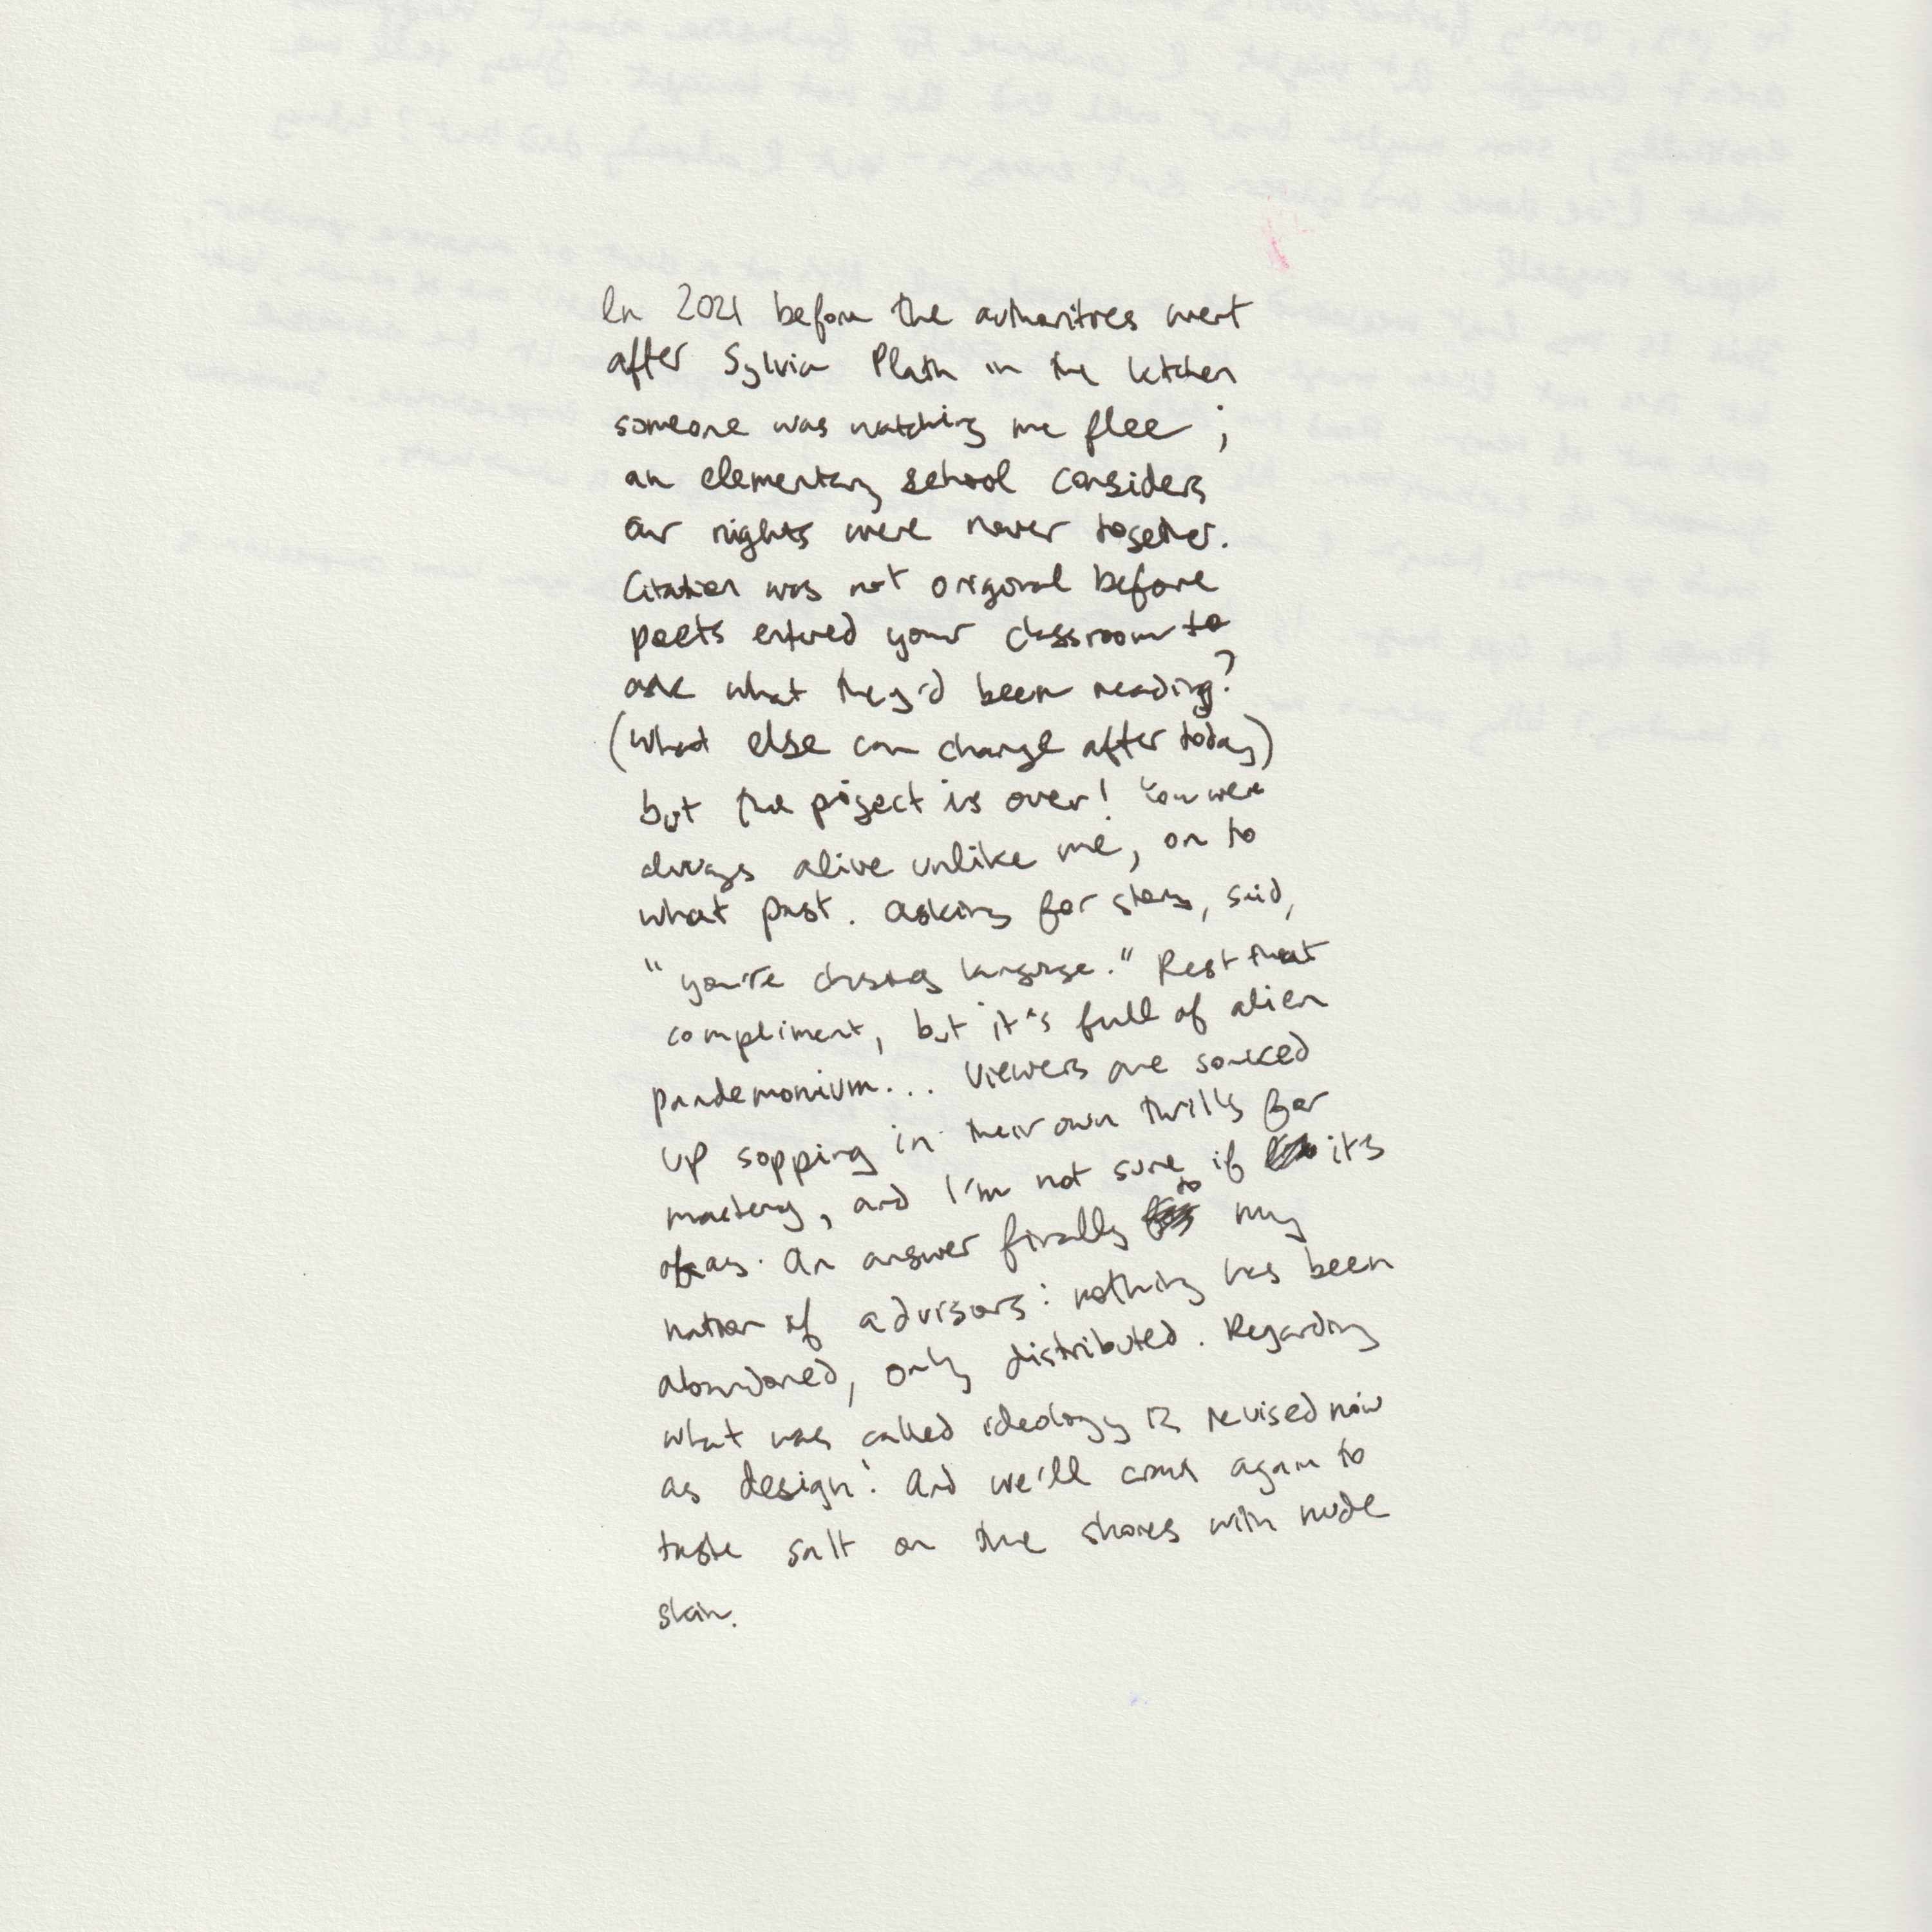 In 2021 before the authorities went
after Sylvia Plath in the kitchen
someone was watching me flee;
an elementary school considers
our nights were never together.
Citation was not original before
poets entered your classroom to
ask what they'd been reading?
(what else can change after today)
but the project is over! You were
always alive unlike me, on to
what past. Asking for story, said,
"you're chasing language." Rest that
compliment, but it's full of alien
pandemonium... Viewers are soaked
up sopping in their own thrills for
mastery, and I'm not sure if it's
An answer finally to my
nation of advisors: nothing has been
abandoned, only distributed. Regarding
what was called ideology is revised now
as design: And we'll come again to
taste salt on the shores with nude
skin.